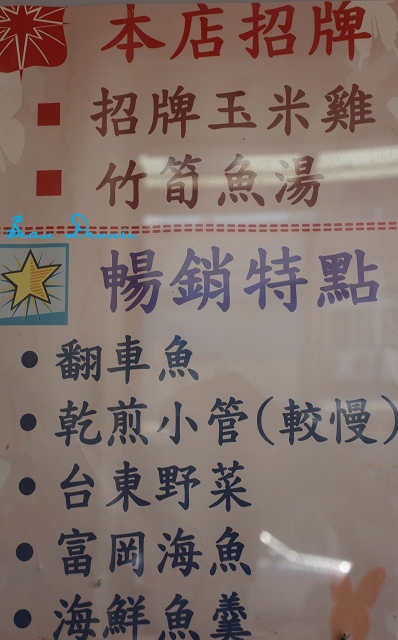 本店招牌
招牌玉米雞
竹筍魚湯
暢銷特點
翻車魚
乾煎小管(較慢)
台東野菜
富岡海魚
海鮮魚羹